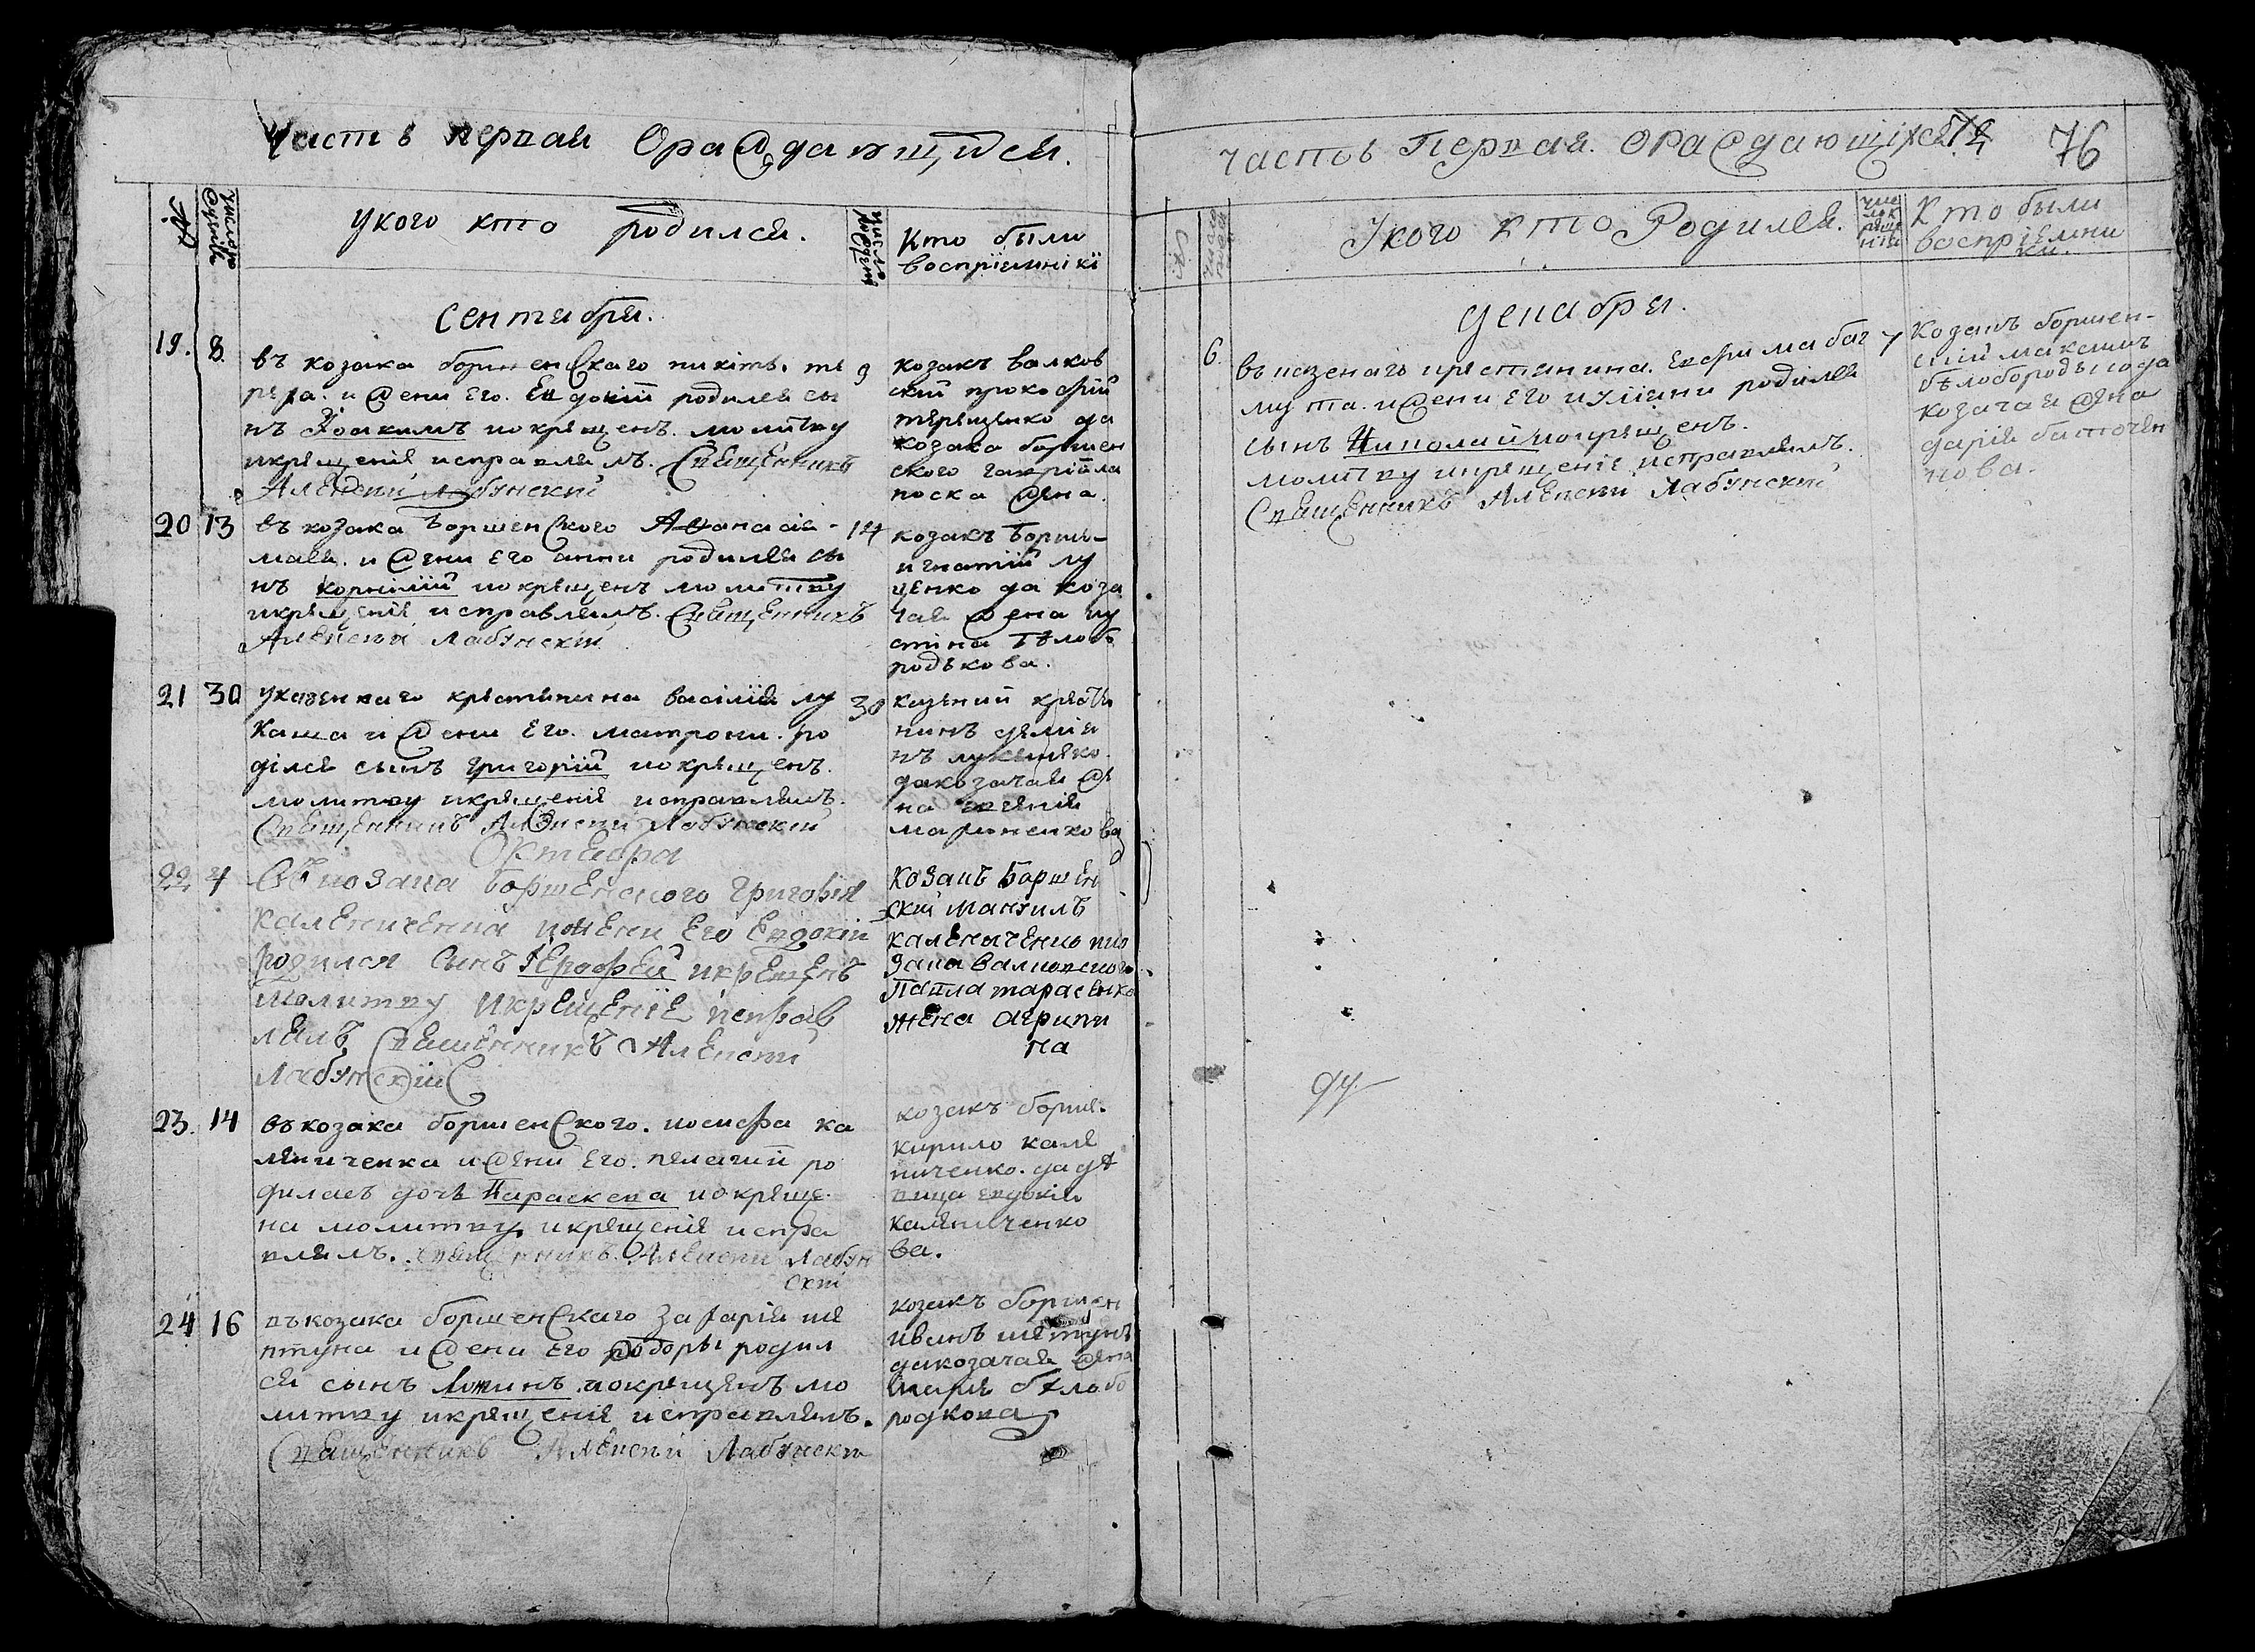 Часть первая Ораждающихся.
№
число рождениія
укого кто родился.
число крещения
Кто были
воспріемникі
Сентября.
19. 8.
въ козака боршенскаго никіты те
рера. и жени его. Евдокіи родился сы
нъ Іоакимъ и окрещенъ. молитву
икрещеніе исправлялъ. Священникъ
Алексей Лабунскій
9
козакъ валков
скій прокофій
терещенко да
козака боршен
ского гавріила
носка жена.
20 13
въ козака Боршенского Афанасія
мася. и жени его анни родился сы
нъ корнілій и окрещенъ молитву
икрещеніе исправлялъ. Священникъ
Алексеи Лабунскій
14
козакъ Борше-
игнатій лу
ценко да коза
чая жена иу
стіна Бѣлоб
родькова.
21 30
указенаго крестянина василія лу
каша и жени его. матрони. ро
ділся сынъ григорій и окрещенъ.
молитву икрещеніе исправлялъ.
Священникъ Алексеи Лабунскій
30
казений крестя
нинъ демія
нъ лукашенко.
дакозачая же
на евгенія
мариненкова
Октября
22 4
Въ козака Боршенского Григорія
Калениченка ижени Его Евдокіи
родился Сынъ Іерофей икрещенъ
молитву икрещеніе исправ
лялъ Священникъ Алексеи
Лабунскій
козакъ Боршен
скій мануилъ
калениченко ико
зака валковского
Павла тарасенка
жена агрипи
на
23. 14
въ козака боршенского. иосифа ка
лениченка ижени его. пелагии ро
дилась дочь Параскева и окреще
на молитву икрещеніе испра
влялъ. священникъ Алексеи Лабун
скій
козакъ борше.
кирило кале
ниченко. да дѣ
вица евдокія
калениченко
ва.
24 16
въ козака боршенскаго Захарія ше
птуна и жени его федоры родил
ся сынъ Логинъ и окрещенъ мо
литву икрещеніе исправлялъ.
Священникъ Алексеи Лабунски
козакъ боршен
иванъ шептунъ
дакозачая жена
марія бѣлобо
родкова
часть Первая. ораждающіхся. 76
№
число рожде
Укого кто Родился.
чис
ло к
реще
нія
Кто были
воспріемни
ки.
декабря.
6.
въ казенаго крестянина. Евфима баг
мута. ижени его иулiани родился
сынъ Николай и окрещенъ.
молитву икрещеніе исправлялъ.
Священникъ Алексеи Лабунскій
7
Козакъ боршен-
скій максимъ
бѣлобородько да
козачая жена
дарія баточен
кова.